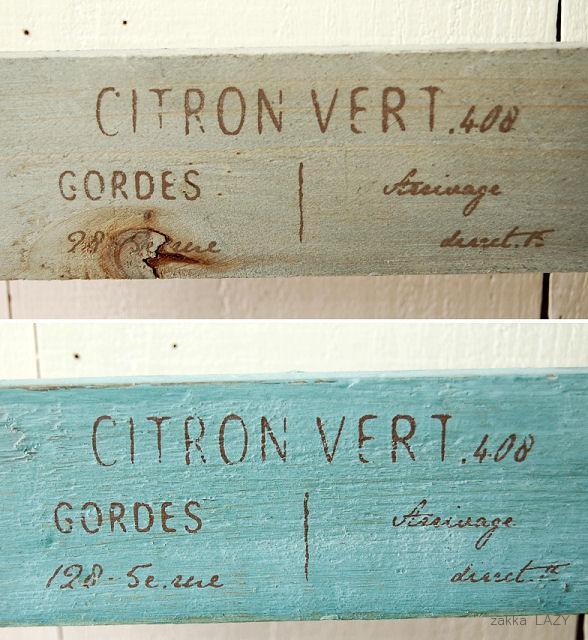 CITRON VERT.408
GORDES
Arrivage
direct.
CITRON VERT.408
GORDES
Arrivage
128-5e.rue
direct.
zakka LAZY